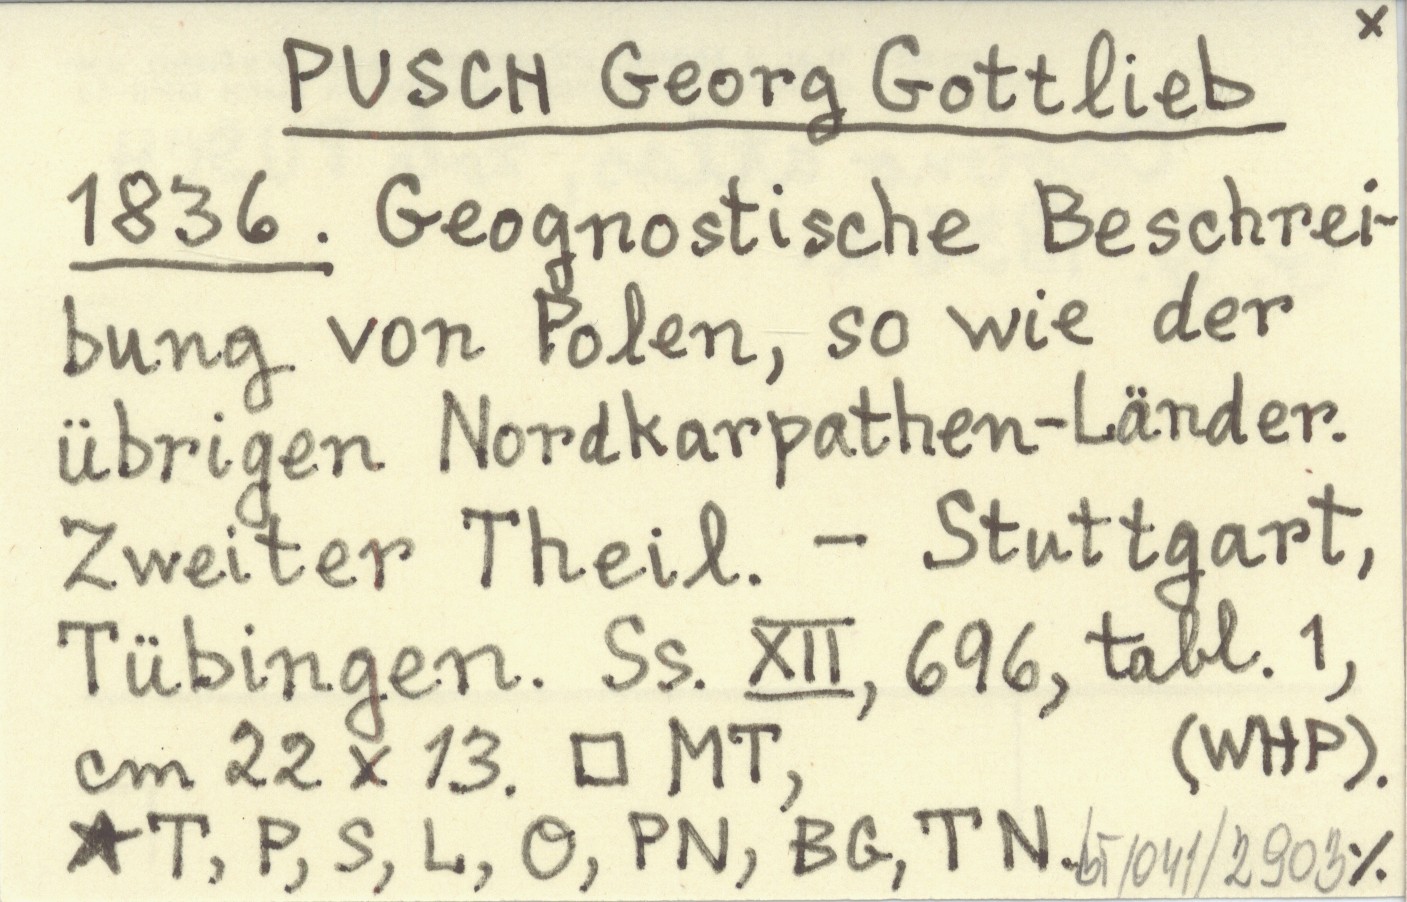 x
PUSCH Georg Gottlieb
1836. Geognostische Beschrei-
bung von Polen, so wie der
übrigen Nordkarpathen-Länder.
Zweiter Theil. - Stuttgart,
Tübingen. Ss. XII, 696, tabl. 1,
cm 22 x 13. □ MT, (WHP).
★T, P, S, L, O, PN, BG, TN. /041/2903 ٪